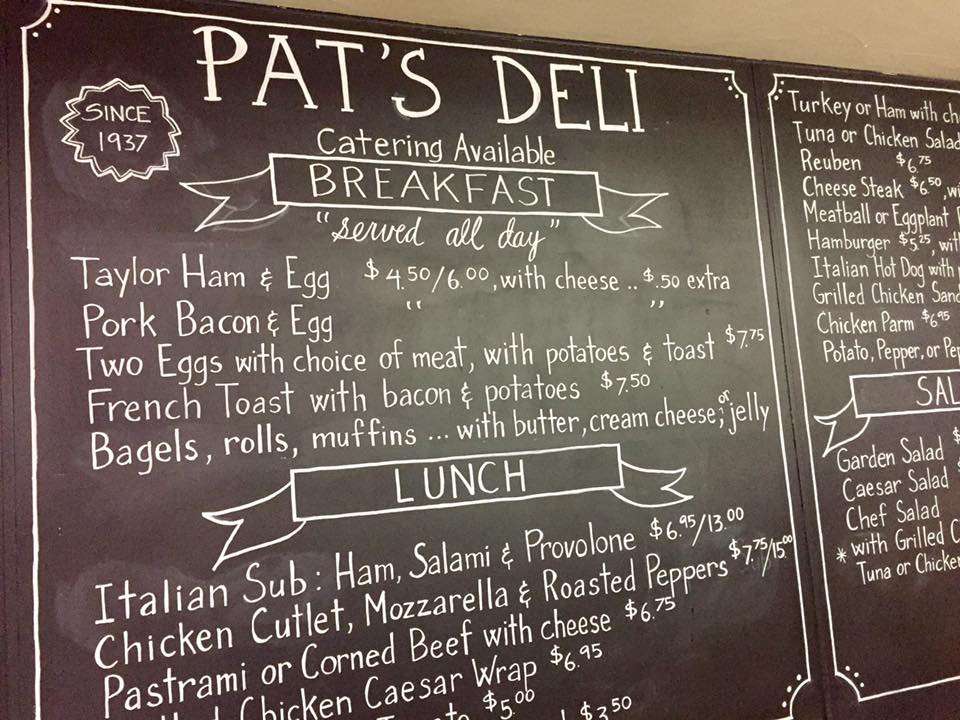 PAT'S DELI
SINCE
1937
Catering Available
BREAKFAST
"served all day"
Taylor Ham & Egg $4.50/6.00, with cheese .. $.50 extra
Pork Bacon & Egg " "
Two Eggs with choice of meat, with potatoes & toast $7.75
French Toast with bacon & potatoes $7.50
Bagels, rolls, muffins ... with butter, cream cheese, or jelly
LUNCH
Italian Sub: Ham, Salami & Provolone $6.95/13.00
Chicken Cutlet, Mozzarella & Roasted Peppers $7.75/15.00
Pastrami or Corned Beef with cheese $6.75
Chicken Caesar Wrap $6.95
$5.00
$3.50
Turkey or Ham with
Tuna or Chicken Salad
Reuben $6.75
Cheese Steak $6.50,
Meatball or Eggplant
Hamburger $5.25, with
Italian Hot Dog with
Grilled Chicken
Chicken Parm $6.95
Potato, Pepper, or
Garden Salad
Caesar Salad
Chef Salad
* with Grilled
Tuna or Chicken